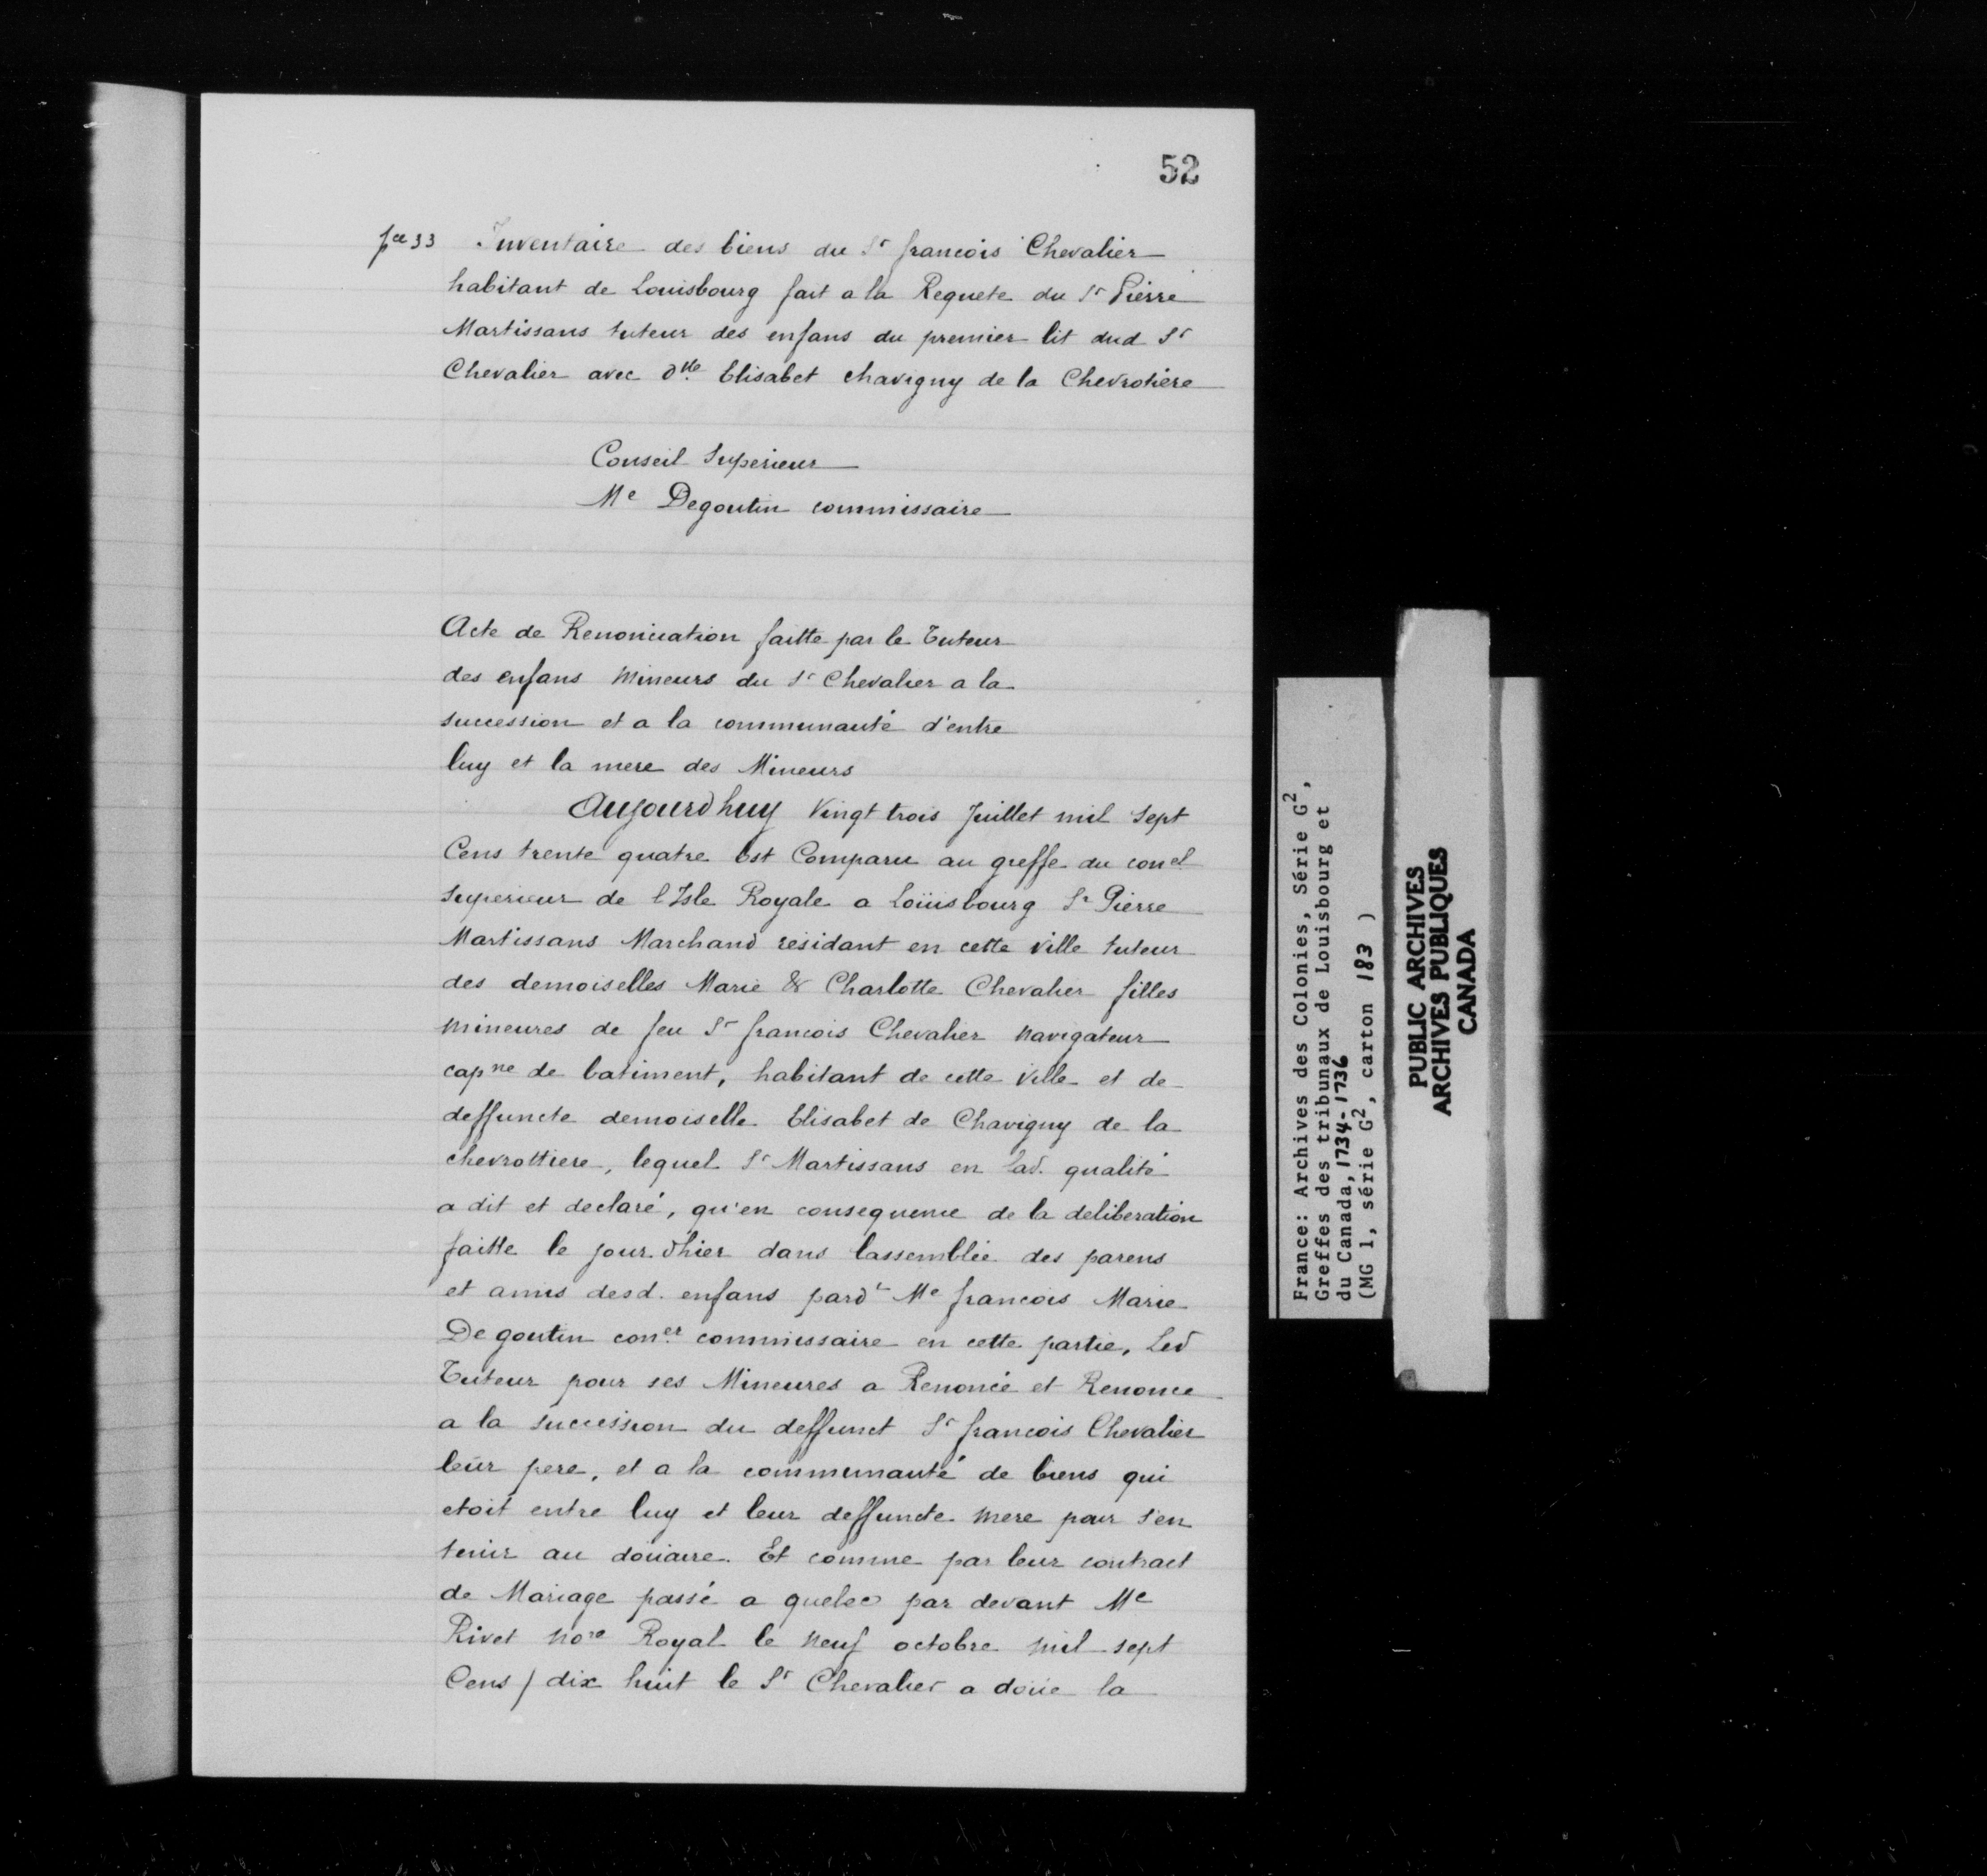 52
pce 33 Inventaire des biens du Sr francois Chevalier
habitant de Louisbourg fait a la Requete du Sr Pierre
Martissans tuteur des enfans du premier lit dud Sr
Chevalier avec dlle Elisabet chavigny de la Chevrotière
Conseil Superieur
Me Degoutin commissaire
Acte de Renonciation faitte par le Tuteur
des enfans Mineurs du Sr Chevalier a la
succession et a la communauté d'entre
luy et la mere des Mineurs
Aujourdhuy Vingt trois Juillet mil Sept
Cens trente quatre Est Comparu au greffe du conel
Superieur de l'Isle Royale a Loüisbourg Sr Pierre
Martissans Marchand residant en cette ville tuteur
des demoiselles Marie & Charlotte Chevalier filles
Mineures de feu Sr francois Chevalier Navigateur
capne de batiment, habitant de cette Ville et de
deffuncte demoiselle Elisabet de Chavigny de la
chevrottiere, lequel Sr Martissans en lad. qualité
a dit et declaré, qu'en consequence de la deliberation
faitte le jour dhier dans lassemblée des parens
et amis desd. enfans pardt Me francois Marie
De goutin coner commissaire en cette partie, Led
Tuteur pour ses Mineures a Renoncé et Renonce
a la succession du deffunct Sr francois Chevalier
leur pere, et a la communauté de biens qui
etoit entre luy et leur deffuncte mere pour s'en
tenir au doüaire. Et comme par leur contract
de Mariage passé a quebec par devant Me
Rivet nore Royal le Neuf octobre mil sept
Cens / dix huit le Sr Chevalier a doüé la
France: Archives des Colonies, Série G2,
Greffes des tribunaux de Louisbourg et
du Canada, 1734-1736
(MG 1, série G2, carton 183 )
PUBLIC ARCHIVES
ARCHIVES PUBLIQUES
CANADA